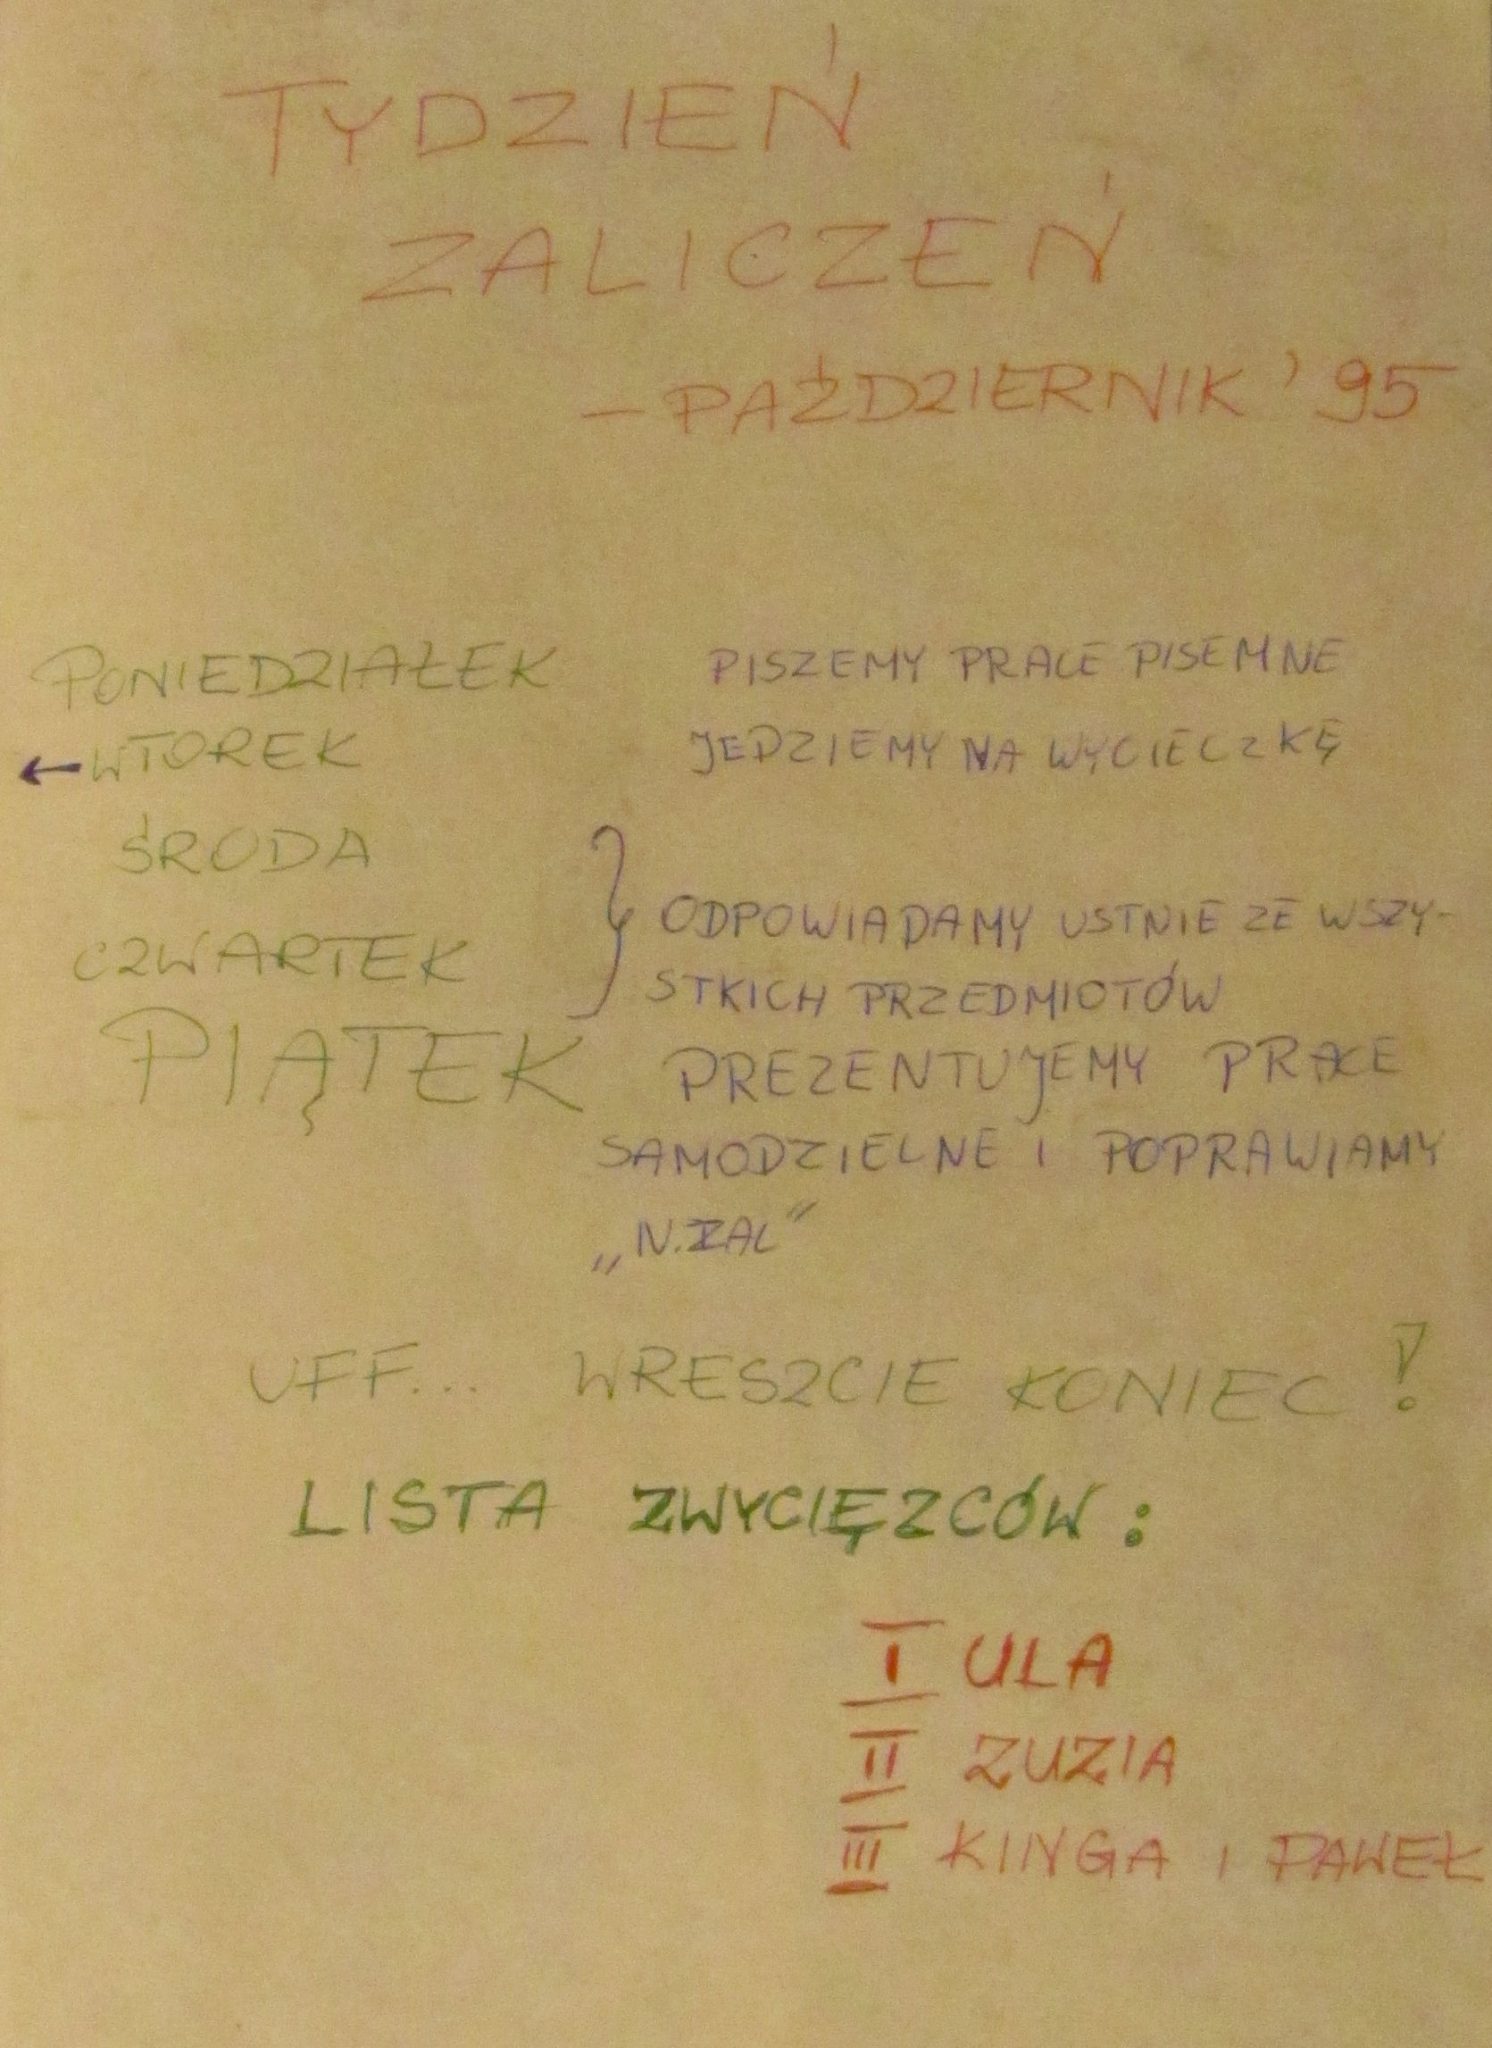 TYDZIEŃ
ZALICZEŃ
– PAŹDZIERNIK '95
PONIEDZIAŁEK PISZEMY PRACE PISEMNE
← WTOREK JEDZIEMY NA WYCIECZKĘ
ŚRODA
} ODPOWIADAMY USTNIE ZE WSZY-
CZWARTEK
STKICH PRZEDMIOTÓW
PIĄTEK PREZENTUJEMY PRACE
SAMODZIELNE I POPRAWIAMY
„N.ZAL"
UFF... WRESZCIE KONIEC!
LISTA ZWYCIĘZCÓW:
I ULA
II ZUZIA
III KINGA I PAWEŁ